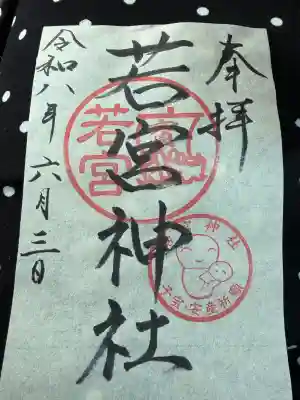 奉拝
若宮神社
令和八年 六月三日
若宮
子宝・安産祈願